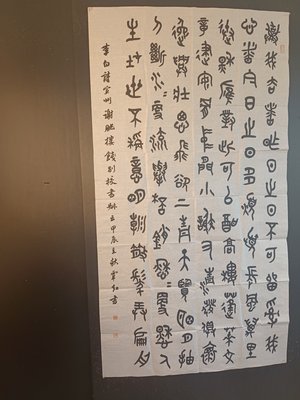 棄我去者昨日之日不可留亂我
心者今日之日多煩憂長風萬里
送秋雁對此可以酣高樓蓬萊文
章建安骨中間小謝又清發俱懷
逸興壯思飛欲上青天覽明月抽
刀斷水水更流舉杯銷愁愁更愁人
生在世不稱意明朝散髮弄扁舟
李白詩宣州謝朓樓餞別校書叔云甲辰秋書